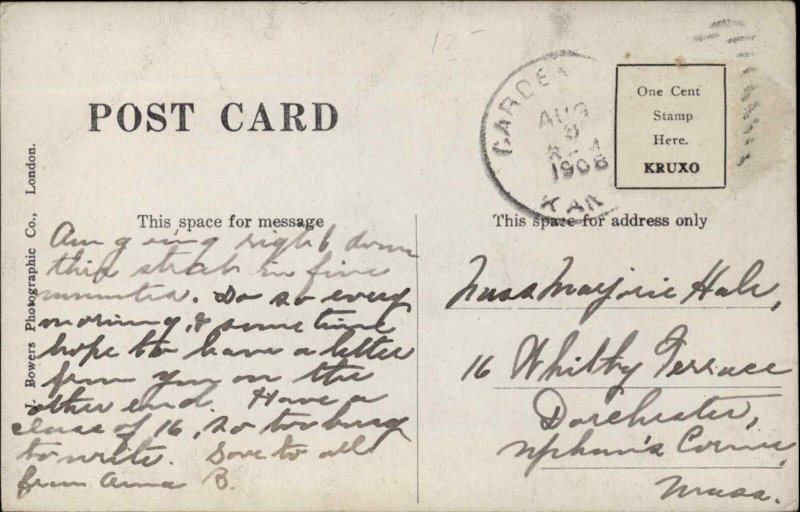 12-
POST CARD
J. Bowers Photographic Co., London.
GARDEN
AUG
8
1908
KAN
One Cent
Stamp
Here.
KRUXO
This space for message
This space for address only
Am going right down
this street in five
minutes. Do so every
morning, & sometime
hope to have a letter
from you on the
other end. Have a
class of 16, so too busy
to write. Love to all
from Anna B.
Miss Marjorie Hale,
16 Whitby Terrace
Dorchester,
Upham's Corner,
Mass.